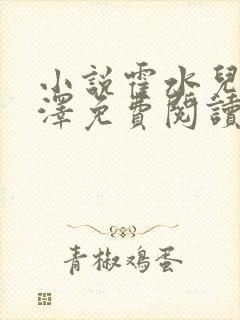 小說霍水兒
澤免費閱讀
青椒鸡蛋